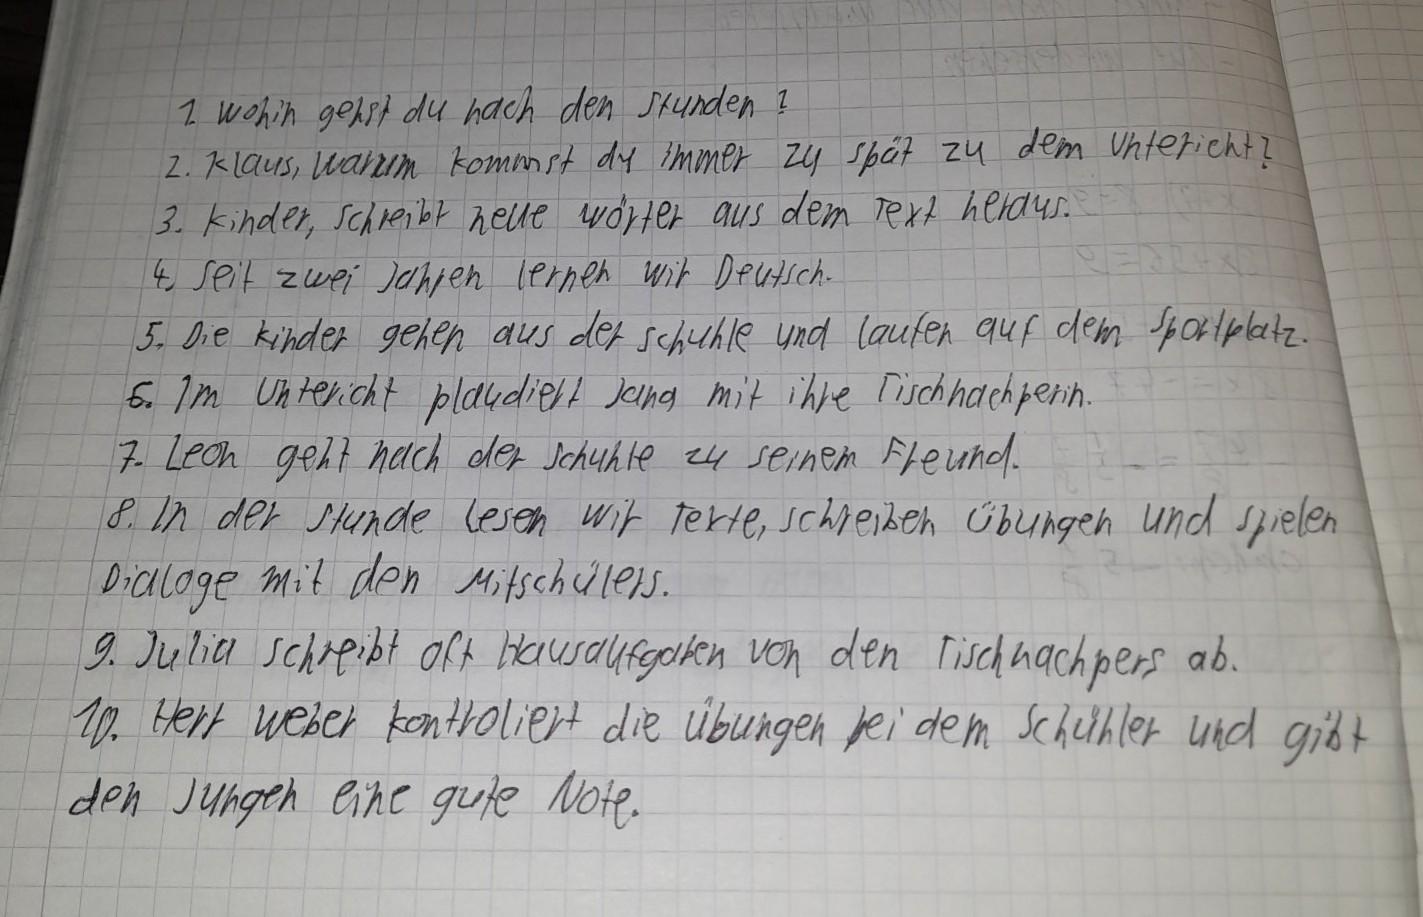 1. Wohin gehst du nach den Stunden?
2. Klaus, warum kommst du immer zu spät zu dem Untericht?
3. Kinder, schreibt neue Wörter aus dem Text heraus.
4. Seit zwei Jahren lernen wir Deutsch.
5. Die Kinder gehen aus der Schuhle und laufen auf dem Sportplatz.
6. Im Untericht plaudiert Jana mit ihre Tischnachperin.
7. Leon geht nach der Schuhle zu seinem Freund.
8. In der Stunde lesen wir Texte, schreiben Übungen und spielen
Dialoge mit den Mitschülers.
9. Julia schreibt oft Hausaufgaben von den Tischnachpers ab.
10. Herr Weber kontroliert die Übungen bei dem Schühler und gibt
den Jungen eine gute Note.